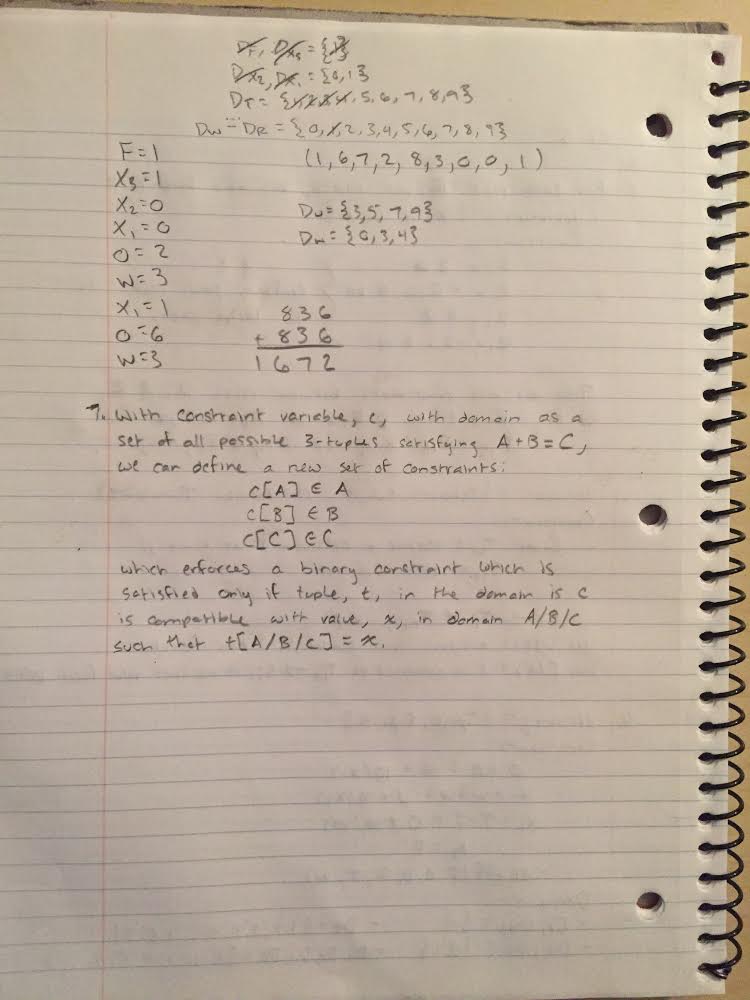 D_F, D_X3 = {1}
D_X2, D_X1 = {0,1}
D_T = {1,2,3,4,5,6,7,8,9}
D_W ... D_R = {0,1,2,3,4,5,6,7,8,9}
F=1
(1,6,7,2,8,3,0,0,1)
X3=1
X2=0
D_U={3,5,7,9}
X1=0
D_W={0,3,4}
O=2
W=3
X1=1
836
O=6
+ 836
W=3
1672
7. With constraint variable, c, with domain as a
set of all possible 3-tuples satisfying A+B=C,
we can define a new set of constraints:
C[A] ∈ A
C[B] ∈ B
C[C] ∈ C
which enforces a binary constraint which is
satisfied only if tuple, t, in the domain is c
is compatible with value, x, in domain A/B/C
such that t[A/B/C] = x.